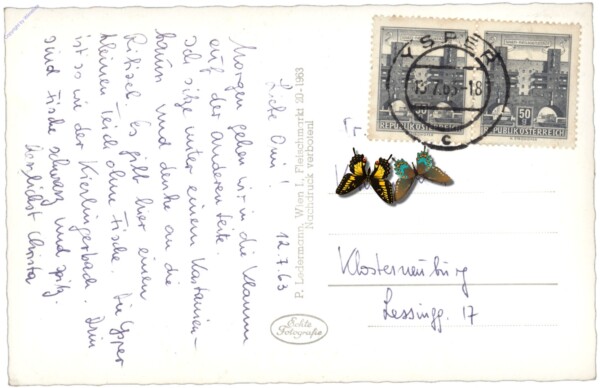 12.7.63
Liebe Omi!
Morgen gehen wir in die Klamm
auf der anderen Seite.
Ich sitze unter einem Kastanien-
baum und denke an die
Es gibt hier einen
kleinen Teich ohne Fische. Die Ysper
ist so wie der Kierlingerbach. Drin
sind Fische schwarz und spitz.
Herzlichst Christa
P. Ledermann, Wien I, Fleischmarkt 20-1963
Nachdruck verboten!
Echte
Fotografie
YSPER
13.7.63-18
c
50
REPUBLIK ÖSTERREICH
50
REPUBLIK ÖSTERREICH
Klosterneuburg
Lessingg. 17